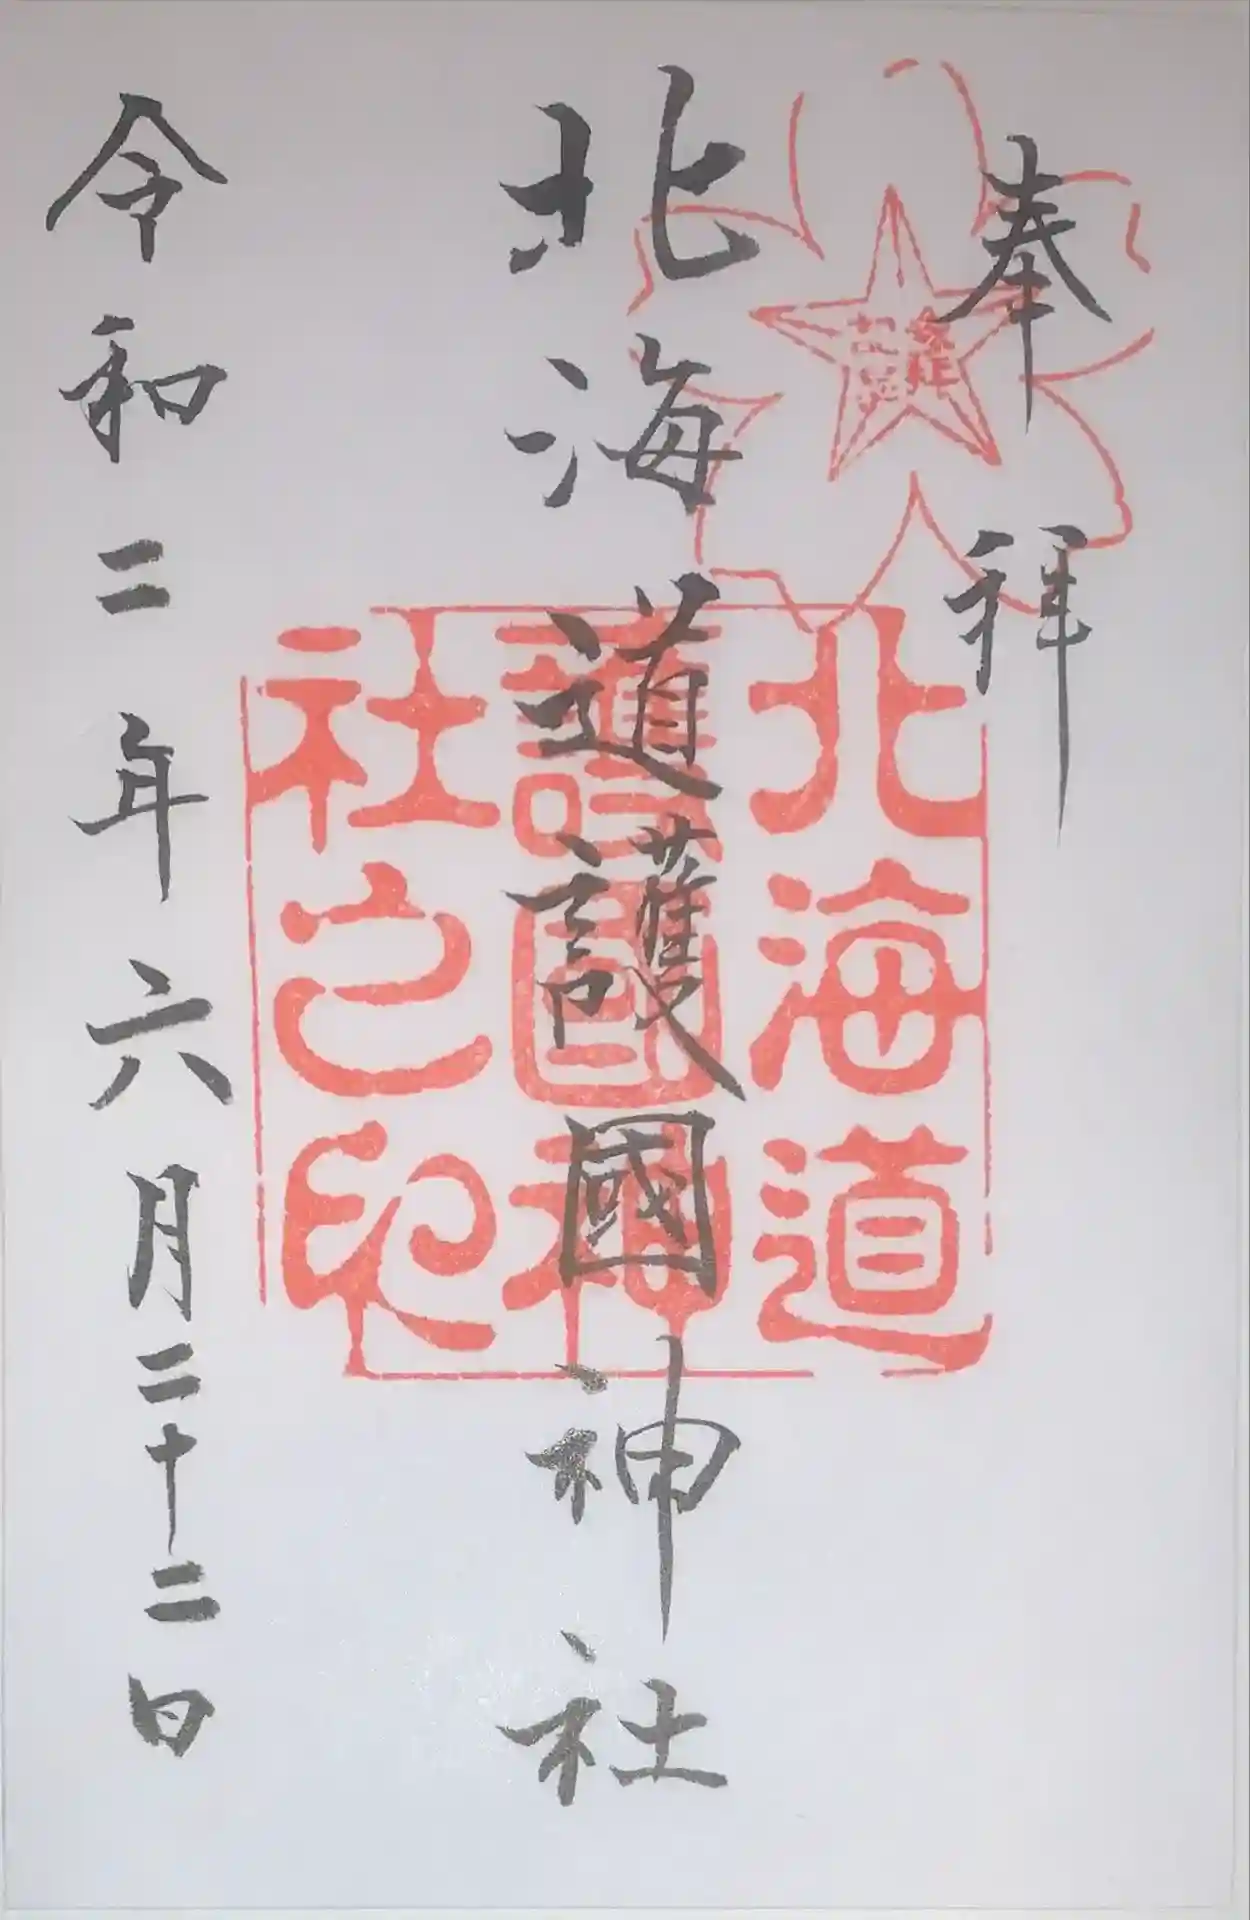 奉拝
参拝
記念
北海道護國神社
北海道
護國神
社之印
令和二年六月二十二日